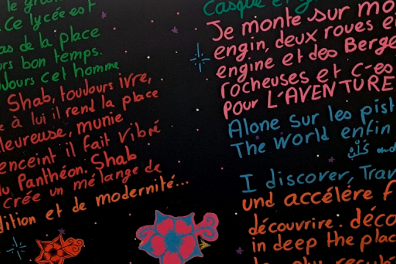 le grand
Ce lycée est
pas de la place
urs bon temps.
oujours cet homme
Shab, toujours ivre,
e à lui il rend la place
aleureuse, munie
enceint il fait vibré
du Panthéon. Shab
Crée un mélange de
dition et de modernité...
Casque et g
Je monte sur mo
engin, deux roues e
engine et des Berge
rocheuses et c-es
pour L'AVENTURE
Alone sur les pist
The world enfin
I discover, Trav
und accéléré f
découvrire. déco
in deep the place